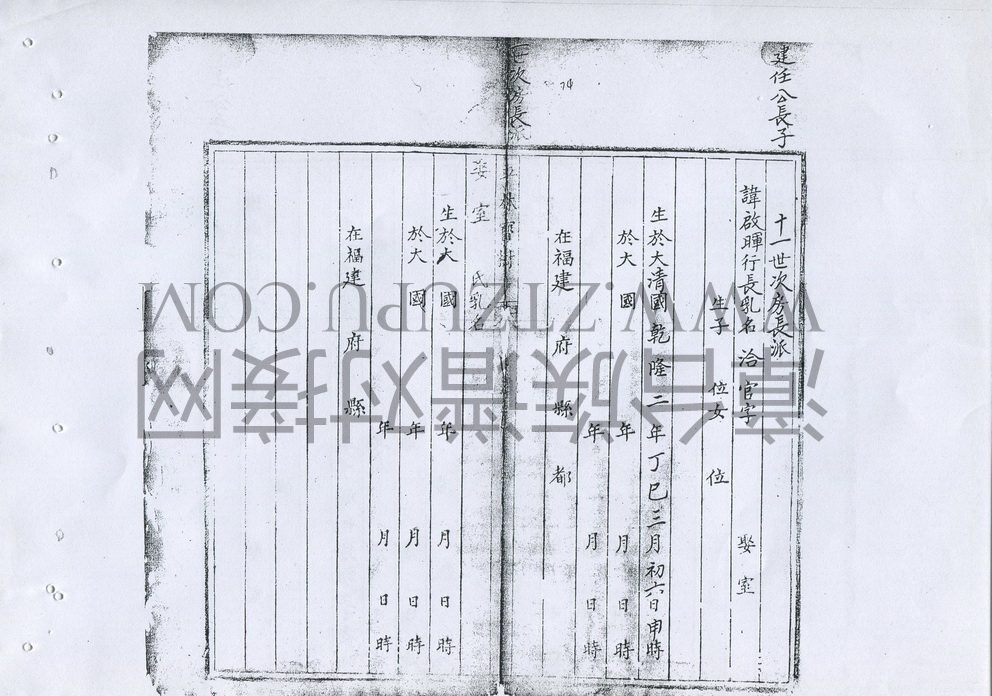 建任公長子
十一世次房長派
諱啟暉行長乳名洽官字 娶室
生子 位女 位
生於大清國乾隆二年丁巳三月初六日申時
於大 國 年 月 日 時
年 月 日 時
在福建 府 縣 都
世次房長派
娶室 氏乳名
生於大 國 年 月 日 時
於大 國 年 月 日 時
年 月 日 時
在福建 府 縣
WWW.ZTZUPU.COM
漳台族谱对接网